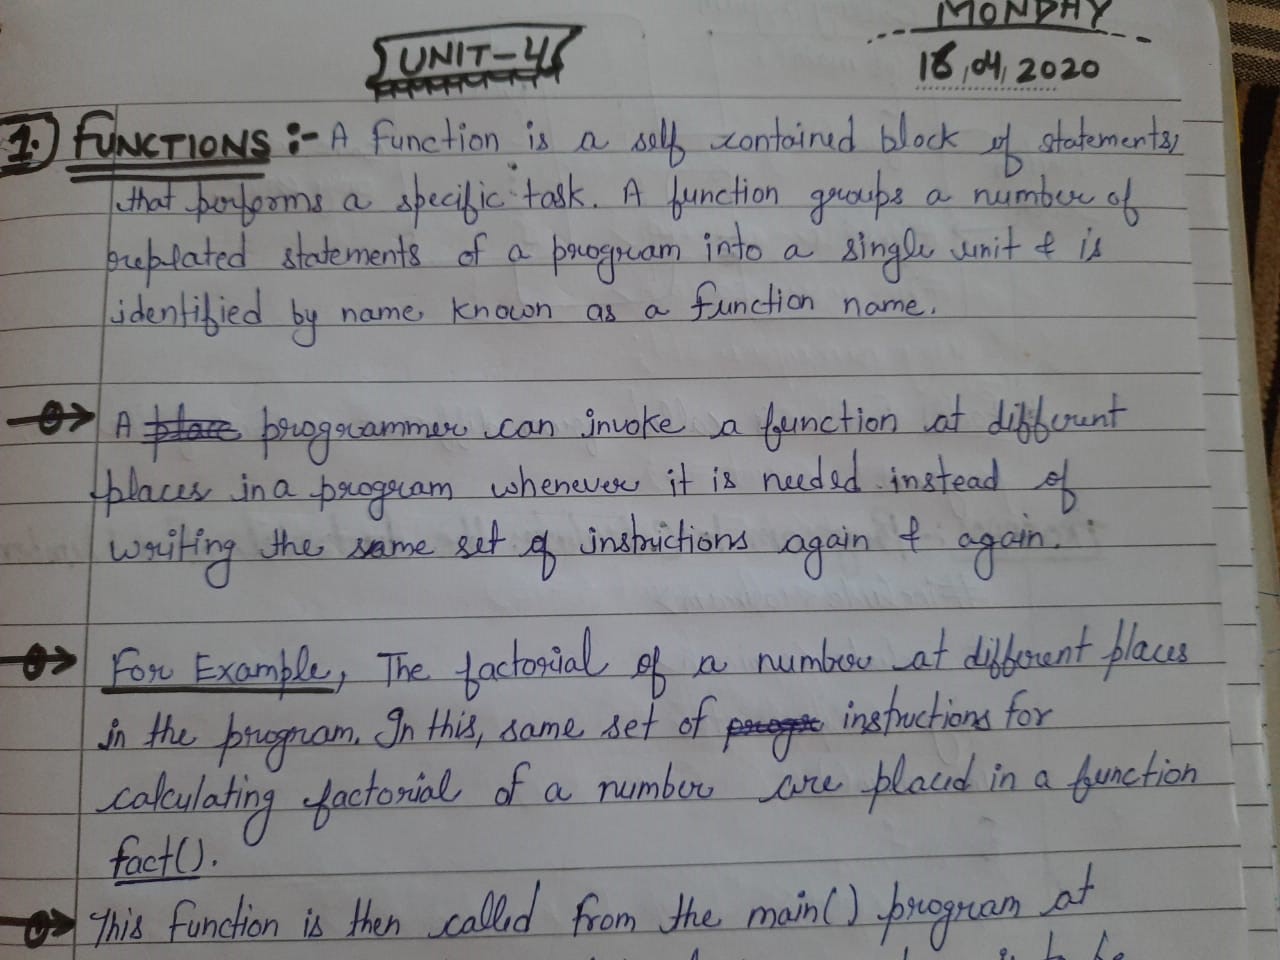 MONDAY
UNIT-4
18,04,2020
1.) FUNCTIONS :- A function is a self contained block of statements,
that performs a specific task. A function groups a number of
statements of a program into a single unit & is
identified by name known as a function name.
A programmer can invoke a function at different
places in a program whenever it is needed instead of
writing the same set of instructions again & again.
For Example, The factorial of a number at different places
in the program. In this, same set of instructions for
calculating factorial of a number are placed in a function
fact().
This function is then called from the main() program at
to be